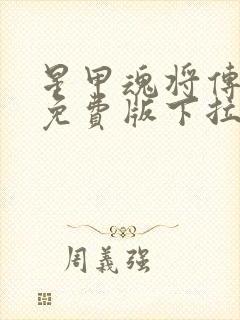 星甲魂将傳
免費版下拉
周義强